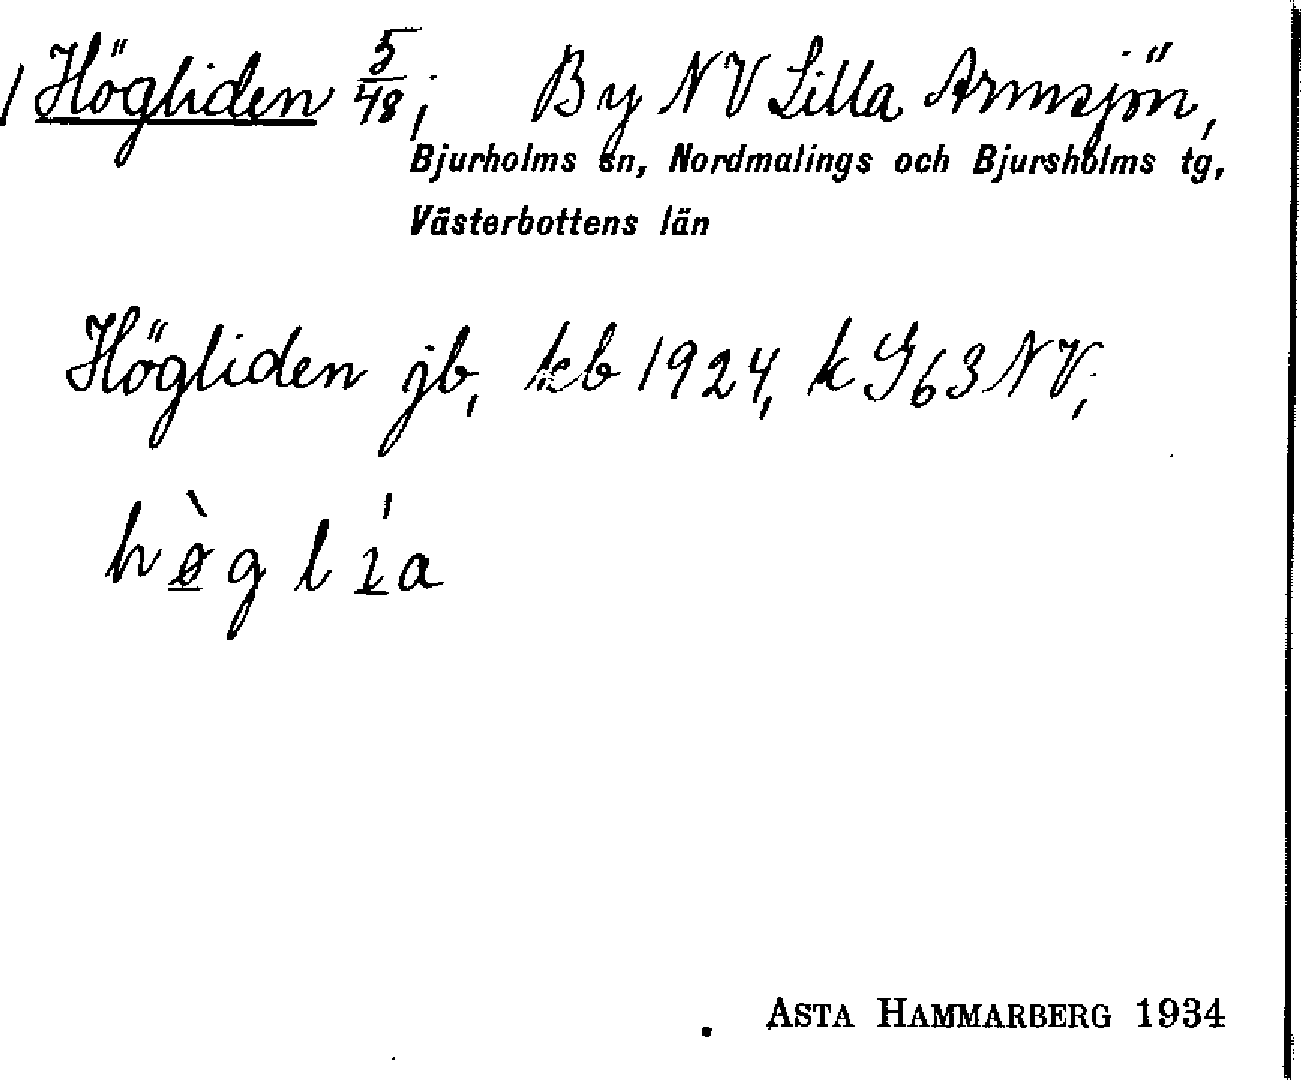 / Högliden 5/48; By NV Lilla Armsjön,
Bjurholms sn, Nordmalings och Bjursholms tg,
Västerbottens län
Högliden jb, kb 1924, k G63 NV;
hø̀g lı́a
ASTA HAMMARBERG 1934